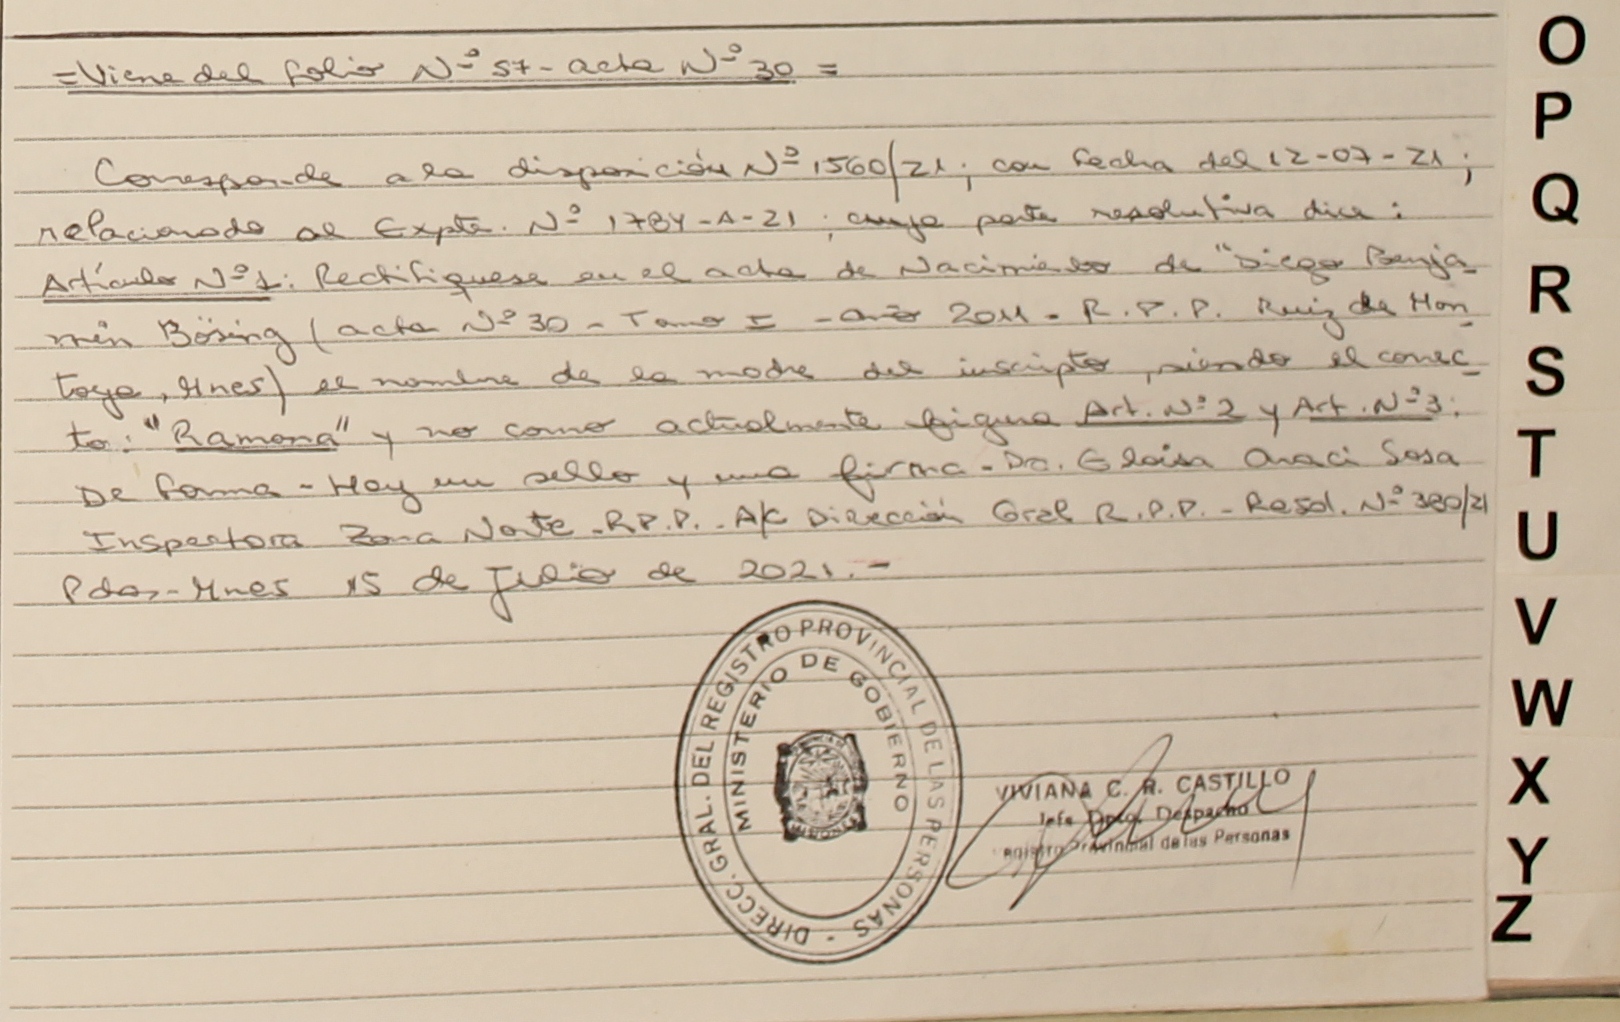 =Viene del folio Nº 57- acta Nº 30 =
Corresponde a la disposición Nº 1560/21; con fecha del 12-07-21;
relacionado al Expte. Nº 1784-A-21; cuya parte resolutiva dice:
Artículo Nº1: Rectifiquese en el acta de Nacimiento de "Diego Benja-
mín Bösing (acta Nº30 - Tomo I - año 2011 - R.P.P. Ruiz de Mon-
toya, Mnes) el nombre de la madre del inscripto, siendo el correc-
to: "Ramona" y no como actualmente figura Art. Nº2 y Art. Nº3:
De forma - Hay un sello y una firma - Dra. Eloisa Araci Sosa
Inspectora Zona Norte - R.P.P. - A/C Dirección Gral R.P.P. - Resol. Nº 380/21
Pdas - Mnes 15 de Julio de 2021.-
DIRECC. GRAL. DEL REGISTRO PROVINCIAL DE LAS PERSONAS -
MINISTERIO DE GOBIERNO
MISIONES
VIVIANA C. R. CASTILLO
Jefe Dpto. Despacho
Registro Provincial de las Personas
O
P
Q
R
S
T
U
V
W
X
Y
Z